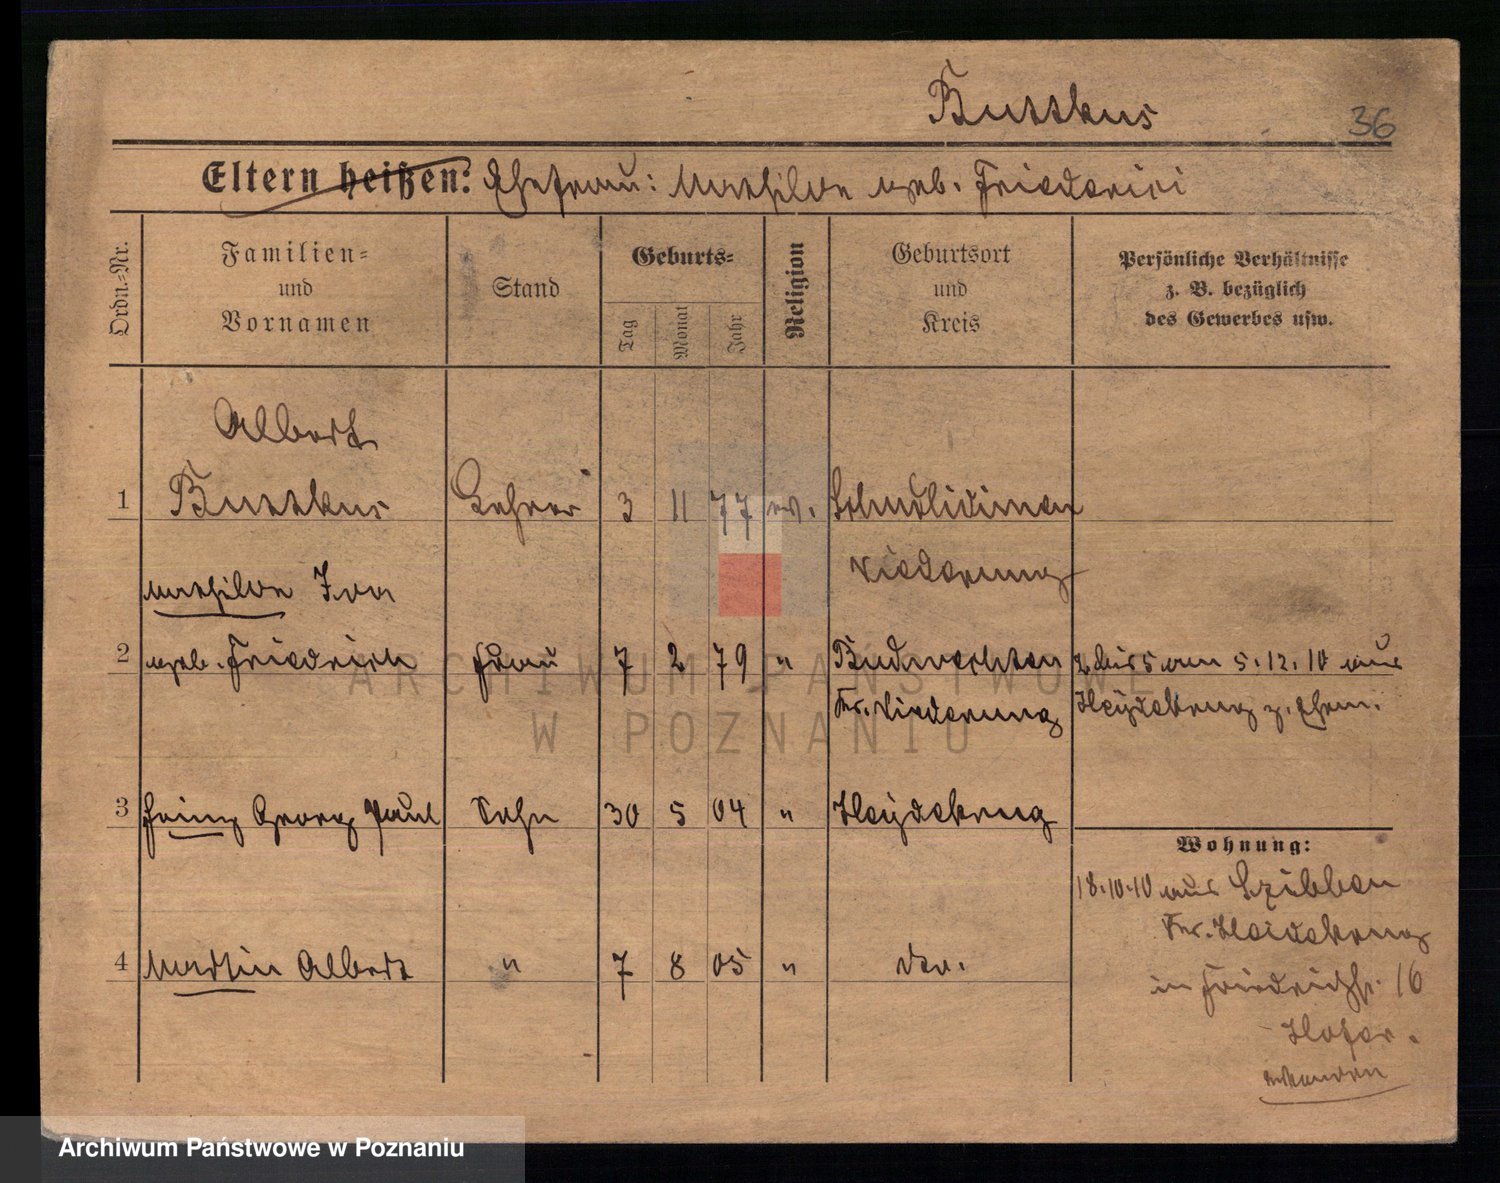 Buttkus
36
Eltern heißen: Ehefrau: Mathilde geb. Friederici
Ordn.-Nr.
Familien-
und
Vornamen
Stand
Geburts-
Tag
Monat
Jahr
Religion
Geburtsort
und
Kreis
Persönliche Verhältnisse
z. B. bezüglich
des Gewerbes usw.
Albert
1 Buttkus Lehrer 3 11 77 ev.
Niederung
Mathilde Ida
2 geb. Friedrich Frau 7 2 79 " Budwethen 5.12.10 aus
Kr. Niederung Heydekrug z. Ehem.
3 Georg Paul Sohn 30 5 04 " Heydekrug
Wohnung:
18.10.10 aus Szibben
Kr. Heidekrug
4 Martin Albert " 7 8 05 " do.
in Friedrichstr. 16
ARCHIWUM PAŃSTWOWE
W POZNANIU
Archiwum Państwowe w Poznaniu